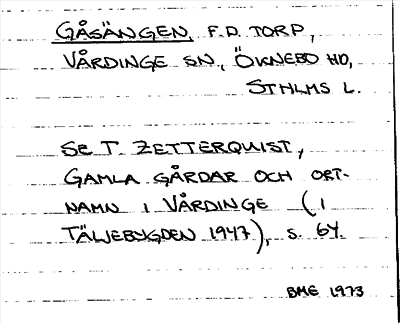 GÅSÄNGEN, F.D. TORP,
VÅRDINGE SN., ÖKNEBO HD,
STHLMS L.
SE T. ZETTERQUIST,
GAMLA GÅRDAR OCH ORT-
NAMN I VÅRDINGE (I
TÄLJEBYGDEN 1947), S. 64.
BME 1973